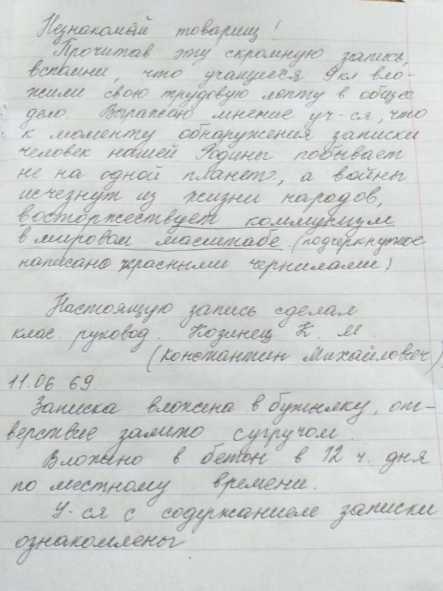 Незнакомый товарищ!
Прочитав эту скромную запись,
вспомни, что учащиеся 9 кл вло-
жили свою трудовую лепту в общее
дело. Выражаю мнение уч-ся, что
к моменту обнаружения записки
человек нашей Родины побывает
не на одной планете, а войны
исчезнут из жизни народов,
восторжествует коммунизм
в мировом масштабе (подчеркнутое
написано красными чернилами)
Настоящую запись сделал
клас. руковод. Козинец К. М.
(Константин Михайлович)
11.06 69
Записка вложена в бутылку, от-
верстие залито сургучом.
Вложено в бетон в 12 ч. дня
по местному времени.
У-ся с содержанием записки
ознакомлены